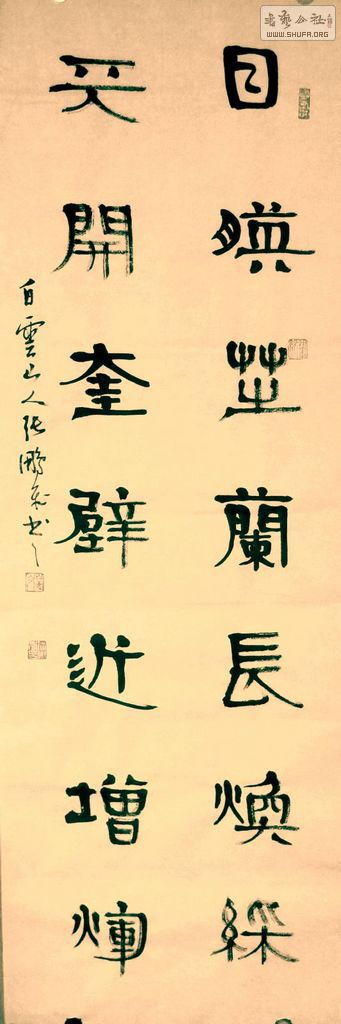 書藝公社
WWW.SHUFA.ORG
日暎芝蘭長煥綵
天開奎壁近增輝
白雲山人張鵬飛书